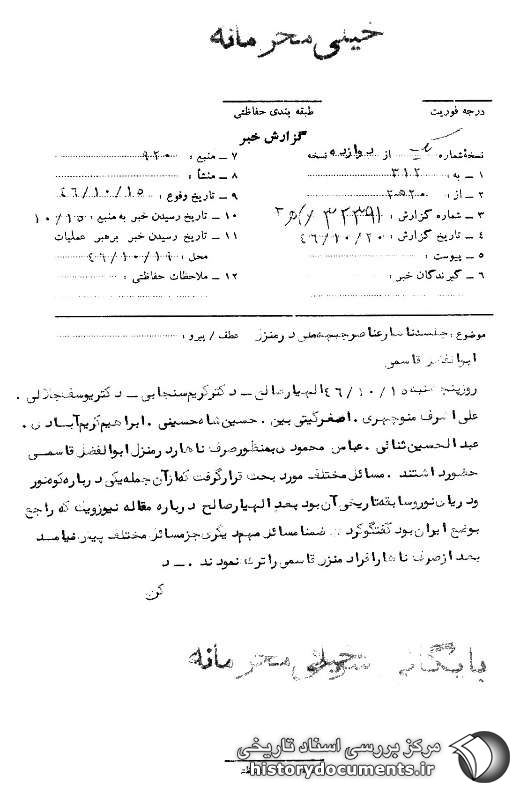 خیلی محرمانه
درجه فوریت
طبقه بندی حفاظتی
گزارش خبر
نسخهٔ شماره یک از دوازده نسخه
۱ ـ به : ۳۱۲
۲ ـ از : ۲۰ه۲
۳ ـ شماره گزارش :
۴ ـ تاریخ گزارش : ۴۶/۱۰/۲۰
۵ ـ پیوست :
۶ ـ گیرندگان خبر :
۷ ـ منبع : ۹۲۰
۸ ـ منشأ :
۹ ـ تاریخ وقوع : ۴۶/۱۰/۱۵
۱۰ ـ تاریخ رسیدن خبر به منبع : ۱۰/۱۵
۱۱ ـ تاریخ رسیدن خبر برهبر عملیات
محل : ۴۶/۱۰/۱۹
۱۲ ـ ملاحظات حفاظتی :
موضوع : جلسه ناهار عناصر جبهه ملی در منزل عطف / پیرو :
ابوالفضل قاسمی
روز پنج شنبه ۴۶/۱۰/۱۵ الهیار صالح ـ دکتر کریم سنجابی ـ دکتر یوسف جلالی .
علی اشرف منوچهری . اصغر گیتی بین . حسین شاه حسینی . ابراهیم کریم آبادی .
عبدالحسین ثنائی . عباس محمودی بمنظور صرف ناهار در منزل ابوالفضل قاسمی
حضور داشتند . مسائل مختلف مورد بحث قرار گرفت که از آن جمله یکی درباره کوه نور
و دریای نور و سابقه تاریخی آن بود بعد الهیار صالح درباره مقاله نیوزویک که راجع
بوضع ایران بود گفتگو کرد ضمنا مسائل مهم دیگری جز مسائل مختلف پیش نیامد
بعد از صرف ناهار افراد منزل قاسمی را ترک نمودند . ـ د
بایگانی خیلی محرمانه
مرکز بررسی اسناد تاریخی
historydocuments.ir